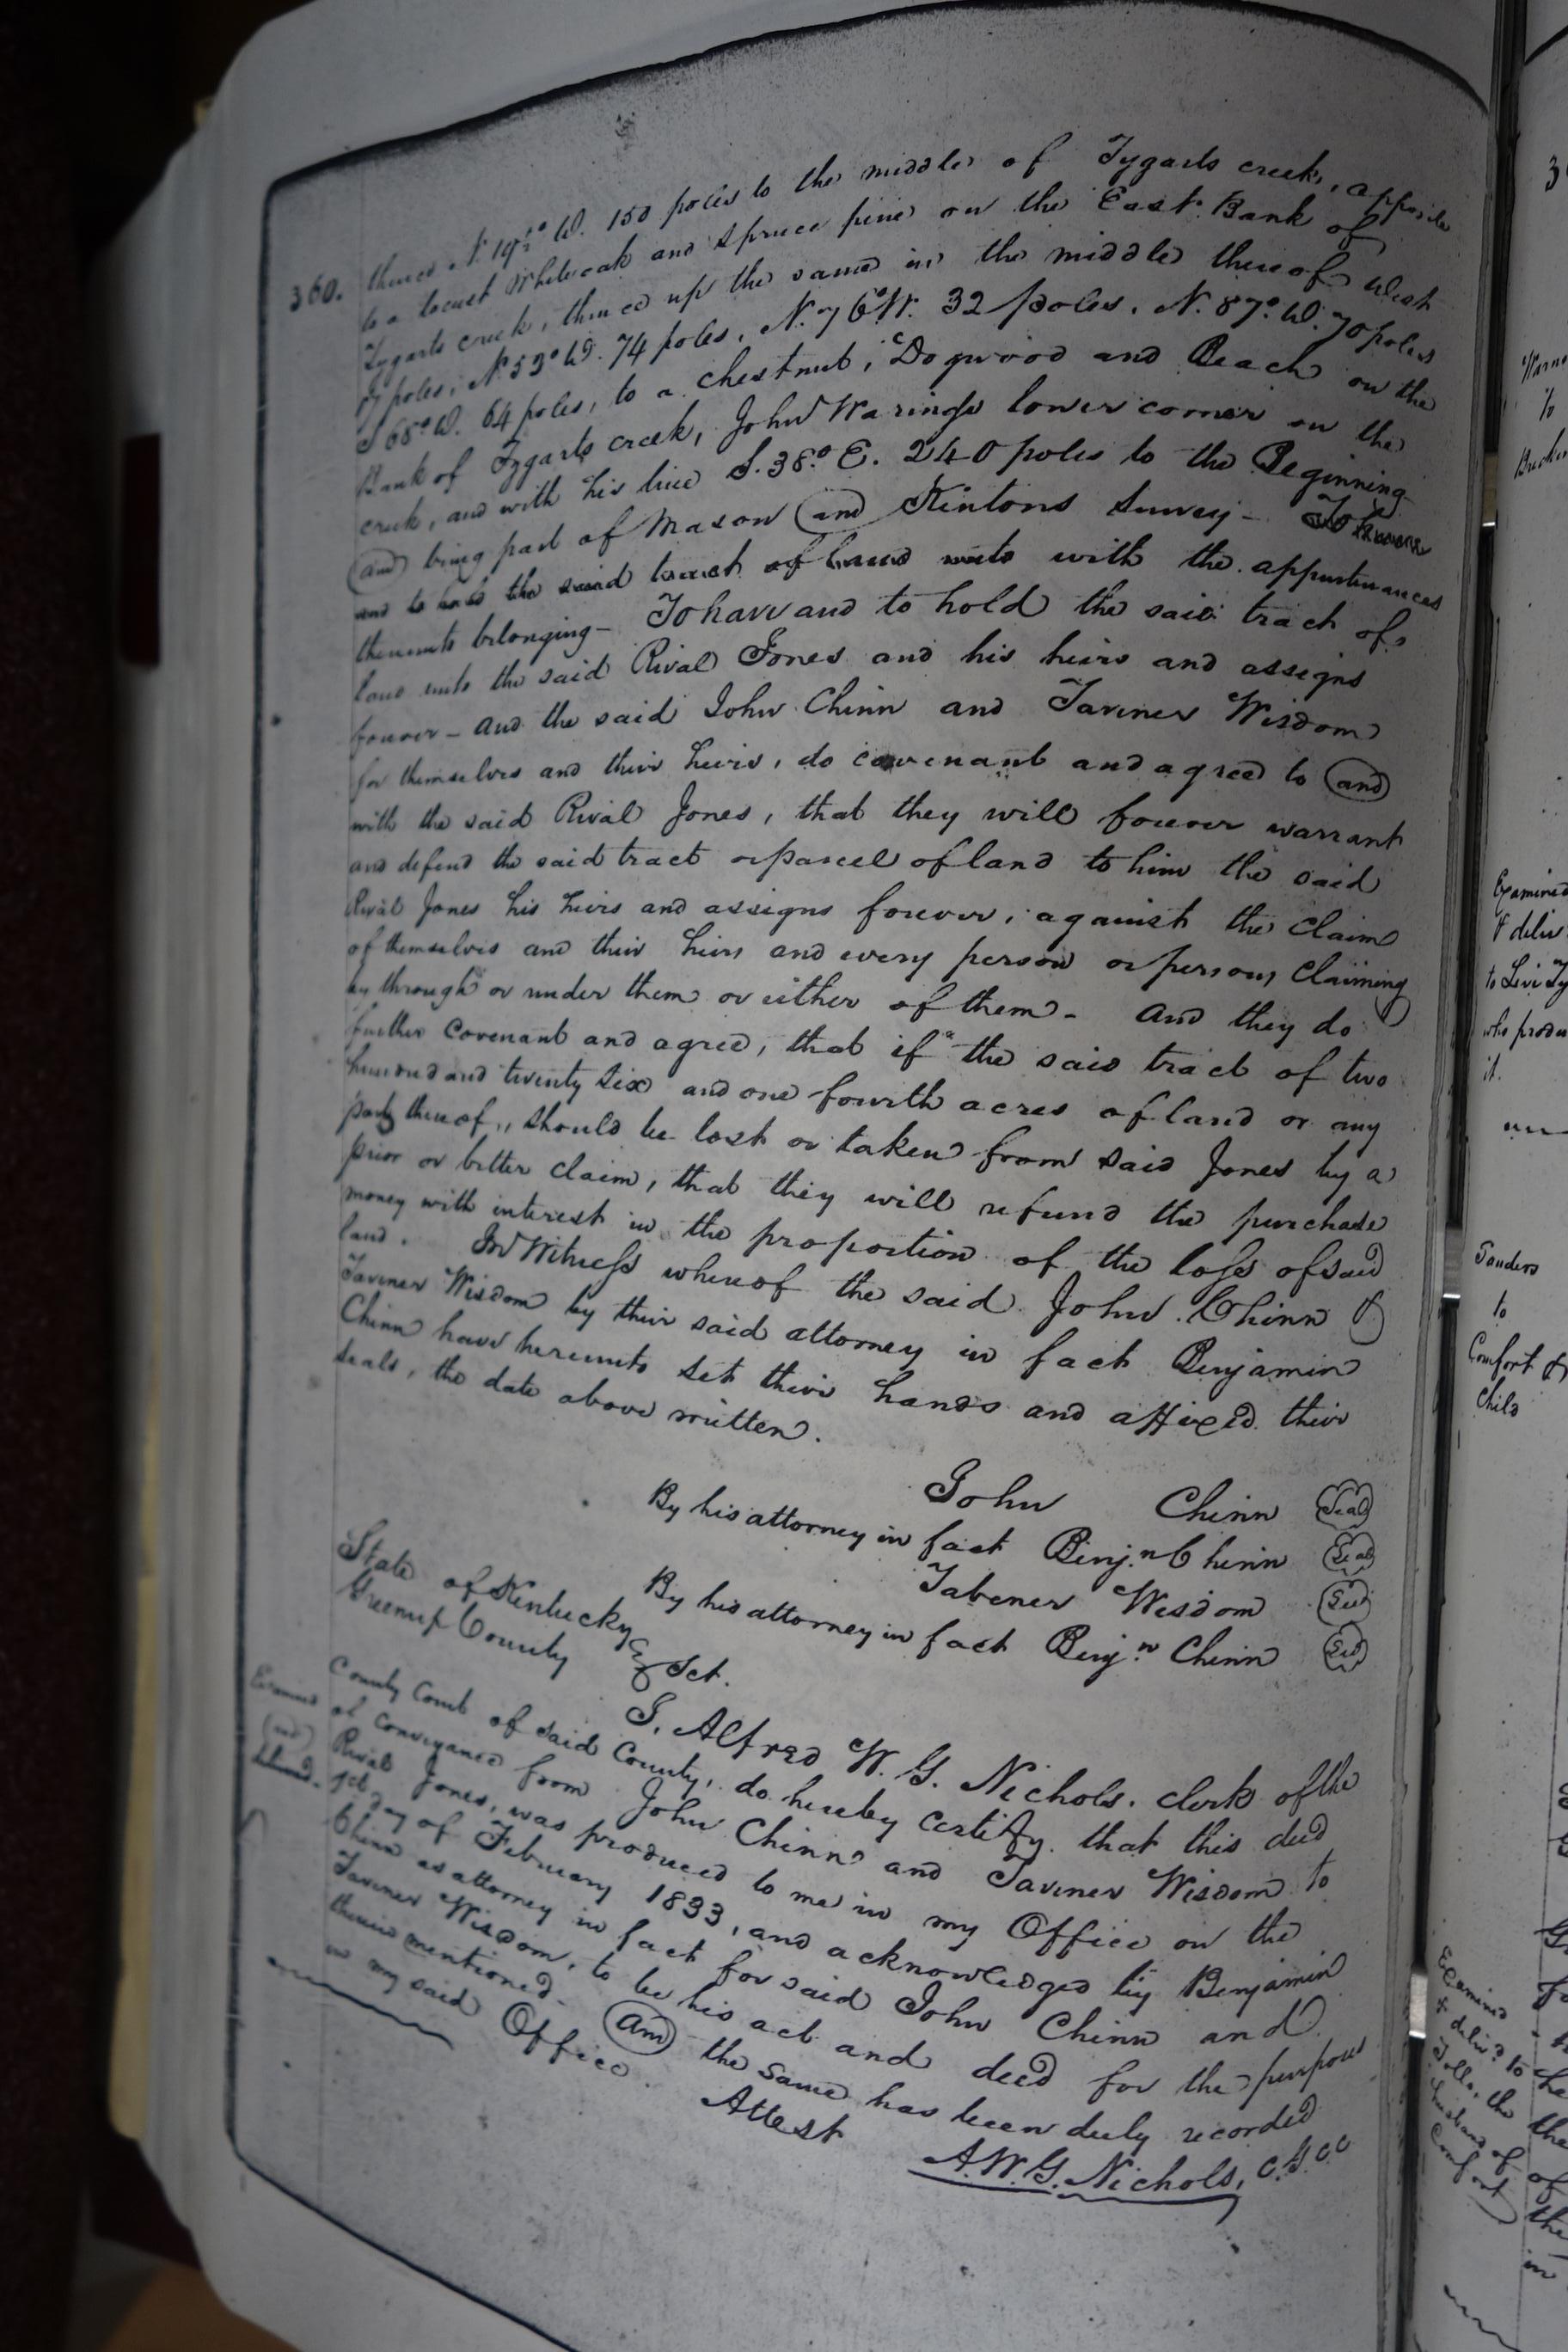 360.
thence N 19½° W. 150 poles to the middle of Tygarts creek, opposite
to a locust White oak and Spruce pine on the East Bank of
Tygarts creek, thence up the same in the middle thereof West
87 poles, N 53° W. 74 poles, N. 76° W. 32 poles. N. 87° W. 70 poles
S 68° W. 64 poles, to a chestnut, Dogwood and Beach on the
Bank of Tygarts creek, John Warings lower corner on the
creek, and with his line S. 38° E. 240 poles to the Beginning
(and) being part of Mason (and) Kintons Survey - To have
and to hold the said tract of land unto with the appurtenances
thereunto belonging - To have and to hold the said tract of
land unto the said Rival Jones and his heirs and assigns
forever - and the said John Chinn and Taviner Wisdom
for themselves and their heirs, do covenant and agree to (and)
with the said Rival Jones, that they will forever warrant
and defend the said tract or parcel of land to him the said
Rival Jones his heirs and assigns forever, against the claim
of themselves and their heirs and every person or persons claiming
by through or under them or either of them - And they do
further Covenant and agree, that if the said tract of two
hundred and twenty six and one fourth acres of land or any
part thereof, should be lost or taken from said Jones by a
prior or better claim, that they will refund the purchase
money with interest in the proportion of the loss of said
land. In Witness whereof the said John Chinn &
Taviner Wisdom by their said attorney in fact Benjamin
Chinn have hereunto set their hands and affixed their
seals, the date above written.
John Chinn Seal
By his attorney in fact Benj.n Chinn Seal
Tabener Wisdom Seal
By his attorney in fact Benj.n Chinn Seal
State of Kentucky
Greenup County Sct.
I, Alfred W. G. Nichols, clerk of the
County Court of said County, do hereby certify that this deed
of conveyance from John Chinn and Taviner Wisdom to
Rival Jones, was produced to me in my Office on the
1st day of February 1833, and acknowledged by Benjamin
Chinn as attorney in fact for said John Chinn and
Taviner Wisdom, to be his act and deed for the purposes
therein mentioned - (And) the same has been duly recorded
in my said Office.
Attest A. W. G. Nichols, C.G.C.C
Examined
(and)
delivered.
Examined
& deliv
to Levi Ty
who produ
it.
Sanders
to
Comfort &
Child
Examined
& deliv.d to
husband of
Comfort